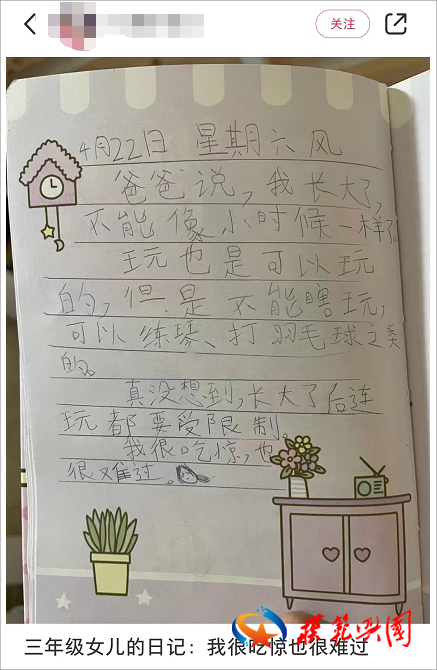 关注
4月22日 星期六 风
爸爸说,我长大了,
不能像小时候一样了。
玩也是可以玩
的,但是不能瞎玩,
可以练琴、打羽毛球之类
的。
真没想到,长大了后连
玩都要受限制。
我很吃惊,也
很难过。
三年级女儿的日记:我很吃惊也很难过
模范兴国